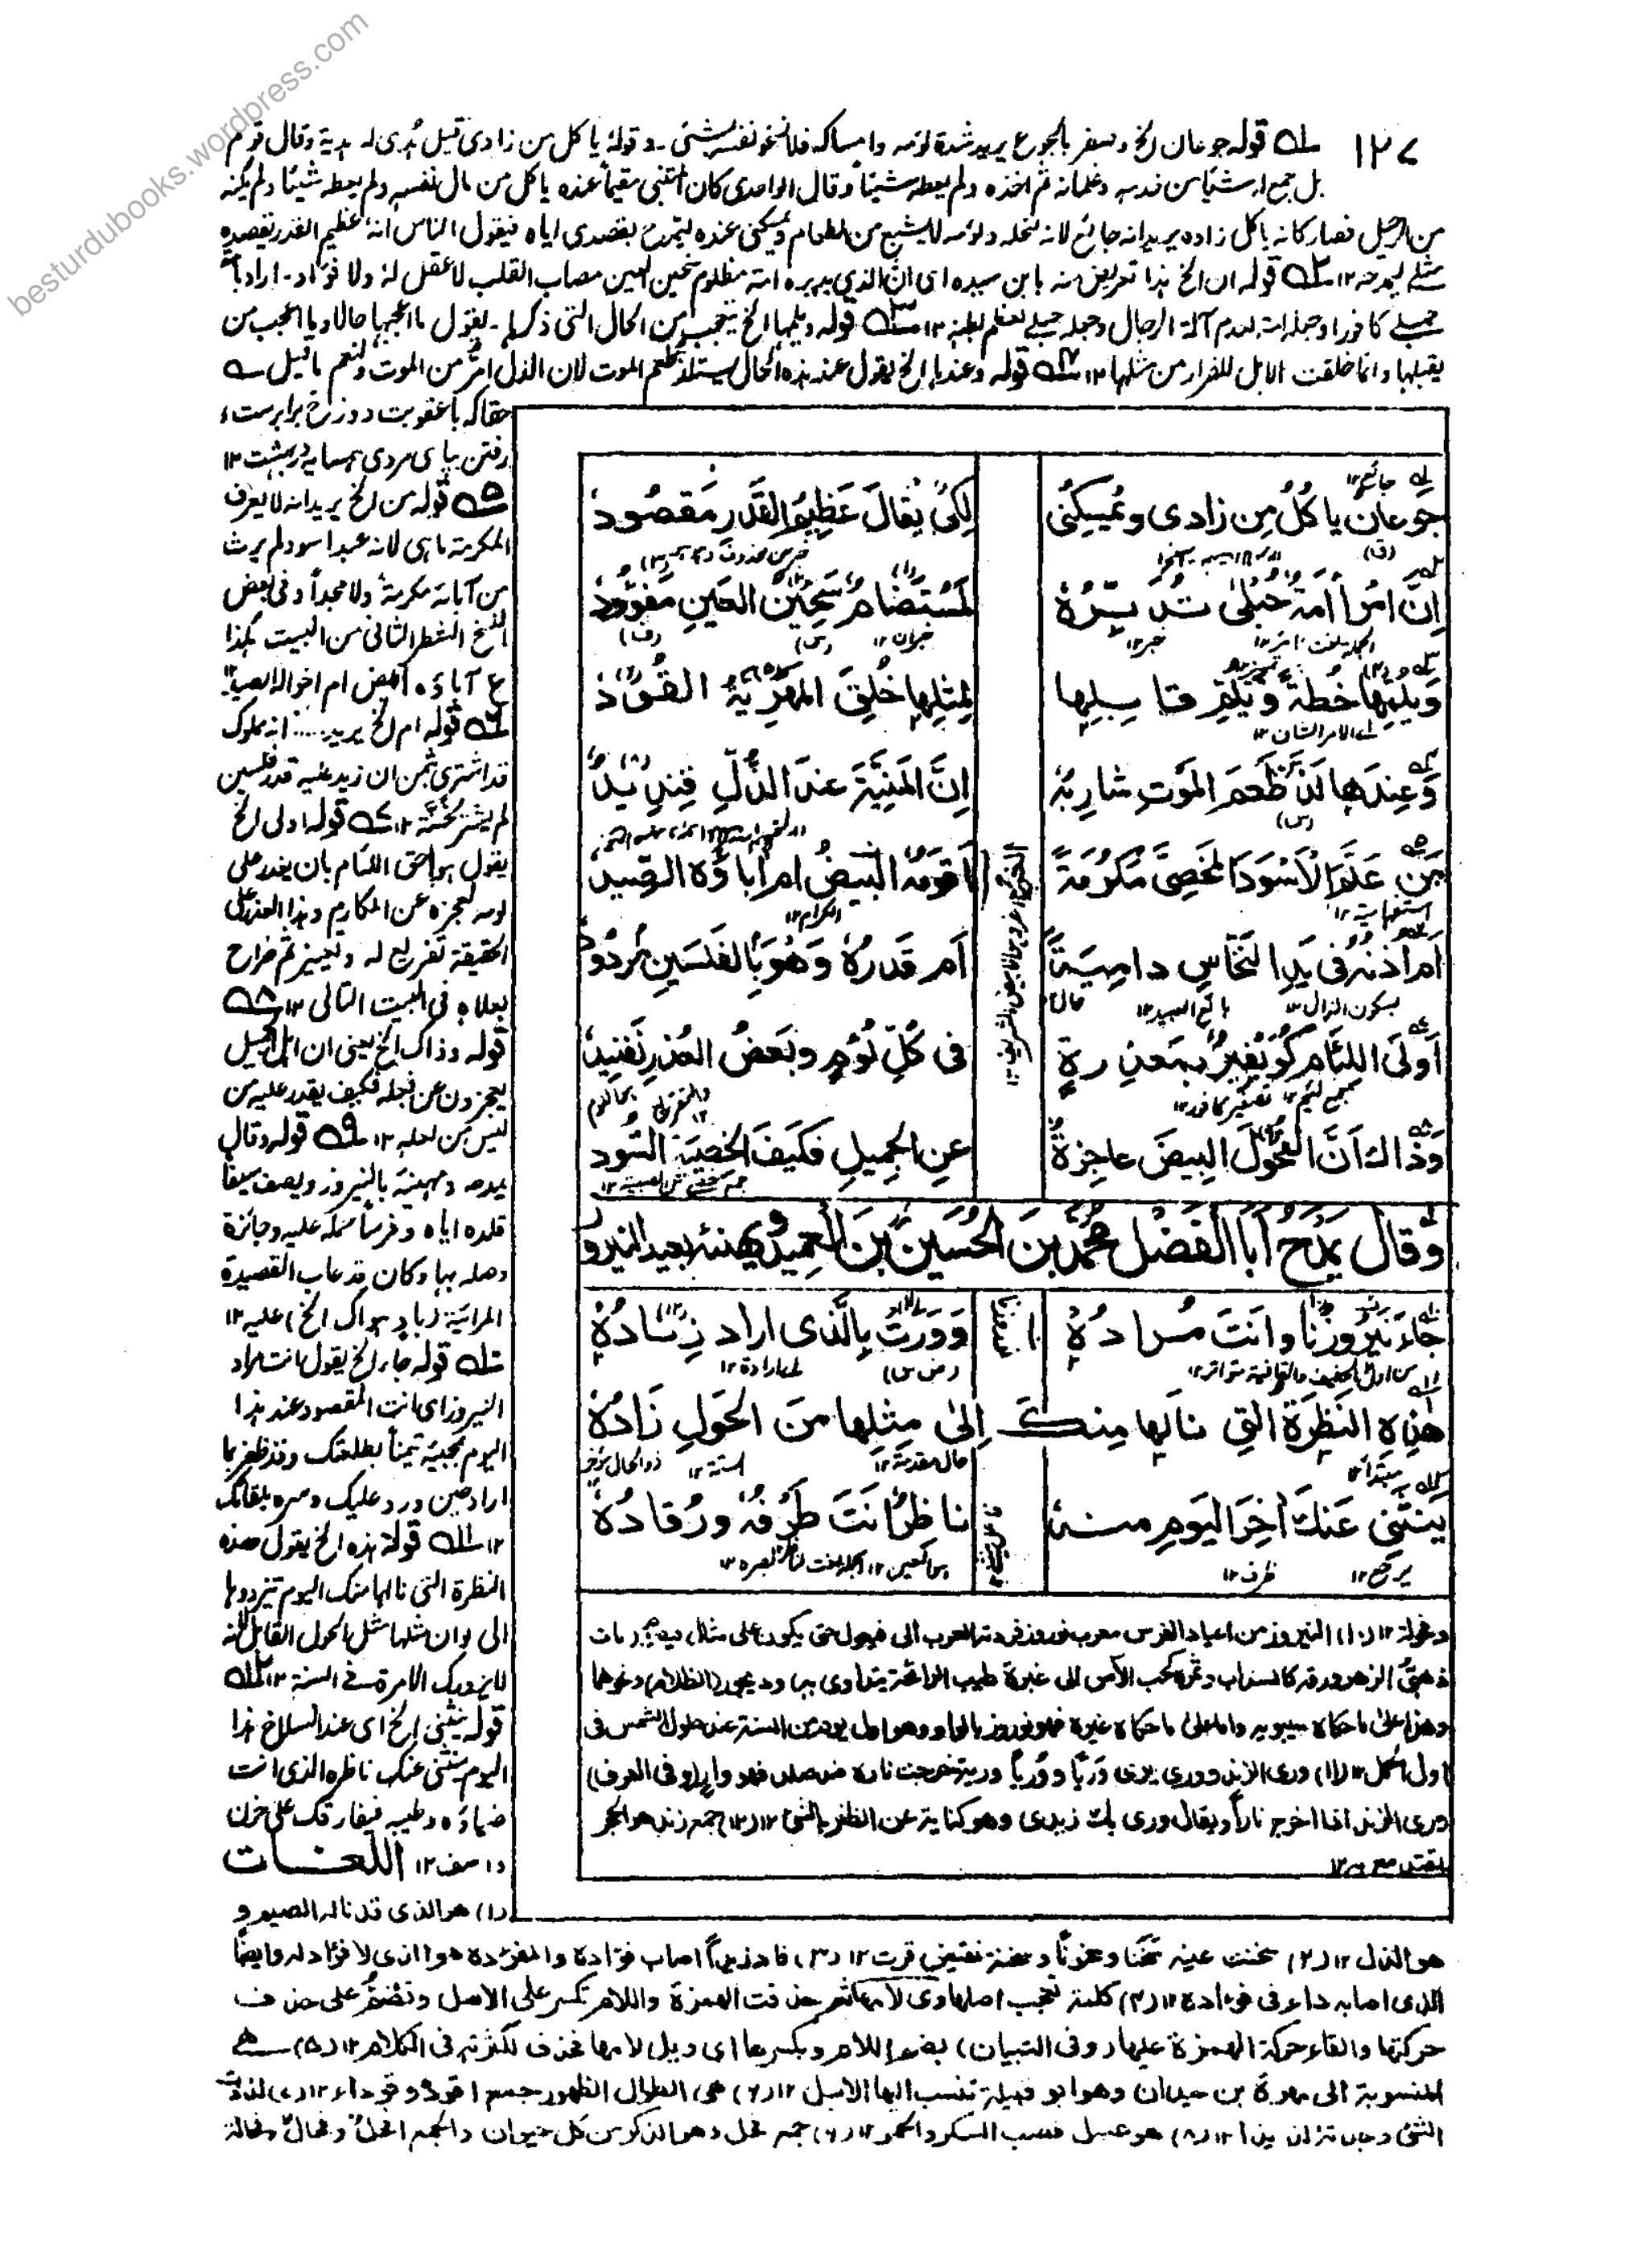 besturdubooks.wordpress.com
١٢٧
قوله جوعان الخ وسفر بالجوع يريد شدة لؤمه وامساكه فلا نفسه بشئ وقوله ياكل من زادى قيل اهدى له هدية وقال قوم
بل جمع له شيئا من خدمه وغلمانه ثم اخذه ولم يعطه شيئا وقال الواحدى كان المتنبى مقيما عنده ياكل من مال نفسه ولم يعطه شيئا ولم يمكنه
من الرحيل فصار كانه ياكل زاده يريد انه جائع لانه لبخله ولؤمه لا يشبع من الطعام ويمسكنى عنده ليتمدح بقصدى اياه فيقول الناس انه عظيم القدر يقصده
مثلى ليمدحه ١٢ قوله ان الخ هذا تعريض منه بابن سيده اى ان الذى يدبره امة مظلوم سخين العين مصاب القلب لا عقل له ولا فؤاد - اراد
حبلى كافورا وجعله امة لعدم آلة الرجال وجعله حبلى لعظم بطنه ١٢ قوله ويلمها الخ يتعجب من الحال التى ذكرها - يقول ما اعجبها حالا ويا اعجب من
يقبلها وانما خلقت الابل للفرار من مثلها ١٢ قوله وعندها الخ يقول عند هذه الحال يستلذ طعم الموت لان الذل امر من الموت ولنعم ما قيل
حقا كه با عقوبت دوزخ برابرست
رفتن بپاى مردى همسايه در بهشت ١٢
قوله من الخ يريد انه لا يعرف
المكرمة ما هى لانه عبد اسود لم يرث
من آبائه مكرمة ولا مجدا وفى بعض
النسخ الشطر الثانى من البيت هكذا
ع آباؤه البيض ام اخواله الصيد
قوله ام الخ يريد .... انه مملوك
قد اشترى بثمن ان زيد عليه قدر فلسين
لم يشتر ١٢ قوله اولى الخ
يقول هو احق اللئام بان يعذر على
لومه لعجزه عن المكارم وهذا العذر على
الحقيقة تقريع له وتعيير ثم صراح
بعلاه فى البيت التالى ١٢
قوله وذاك الخ يعنى ان اهل الجميل
يعجزون عن فعله فكيف يقدر عليه من
ليس من اهله ١٢ قوله وقال
يمدحه ويهنيه بالنيروز ويصف سيفا
قلده اياه وفرسا حمله عليه وجائزة
وصله بها وكان قد عاب القصيدة
الرائية (باد هواك الخ) عليه ١٢
قوله جاء الخ يقول انت مراد
النيروز اى انت المقصود عند هذا
اليوم بمجيئه تيمنا بطلعتك وقد ظفر بما
اراد حين ورد عليك وسره بلقائك
١٢ قوله هذه الخ يقول هذه
النظرة التى نالها منك اليوم تتزودها
الى اوان مثلها مثل الحول القابل لانه
لا يزورك الا مرة فى السنة ١٢
قوله ينثنى الخ اى عند انسلاخ هذا
اليوم ينثنى عنك ناظره الذى انت
ضياؤه وطيبه فيفارقك على حزن
واسف ١٢ اللغات
(١) هو الذى قد ناله الضيم و
جائع ١٢
جَوعانُ ياكُلُ مِن زادى ويُمسِكُنى لِكَى يُقالَ عَظِيمُ القَدرِ مَقصُودُ
اِنَّ امرَأً اَمَةٌ حُبلىٰ تُدَبِّرُهُ لَمُستَضامٌ سَخِينُ العَينِ مَفؤُودُ
خبران ١٢
وَيلُمِّها خُطَّةً وَيلُمِّ قابِلِها لِمِثلِها خُلِقَ المَهرِيَّةُ القُودُ
اى الامر الشان ١٢
وَعِندَها لَذَّ طَعمَ المَوتِ شارِبُهُ اِنَّ المَنِيَّةَ عندَ الذُّلِّ قِندِيدُ
مَن عَلَّمَ الاَسْوَدَ المَخصِىَّ مَكرُمَةً اَقَومُهُ البِيضُ ام آباؤُهُ الصِّيدُ
استفهامية ١٢ الكرام ١٢
اَم اُذنُهُ فى يَدِ النَّخّاسِ دامِيَةً اَم قَدرُهُ وَهُوَ بِالفَلسَينِ مَردُودُ
بسكون الذال ١٢ بائع العبيد ١٢ حال ١٢
اَولَى اللِّئامِ كُوَيفِيرٌ بِمَعذِرةٍ فى كُلِّ لُؤمٍ وبَعضُ العُذرِ تَفنِيدُ
جمع لئيم ١٢ تصغير كافور ١٢
وَذٰاكَ اَنَّ الفُحُولَ البِيضَ عاجِزةٌ عَنِ الجَمِيلِ فكَيفَ الخِصيَةُ السُّودُ
وَقالَ يَمدَحُ اَبَا الفَضلِ مُحمَّدَ بنَ الحُسَينِ بنَ العَمِيدِ ويهنئه بعيد النيروز
جاءَ نَيرُوزُنا وانتَ مُرادُهْ وَوَرَت بِالَّذى ارادَ زِنادُهْ
من اول الخفيف والقافية متواتر ١٢ اى ارادة ١٢
هٰذِهِ النَظرَةُ التى نالَها مِنكَ اِلىٰ مِثلِها مِنَ الحَولِ زَادُهْ
مبتدا ١٢ حال مقدمة ١٢ السنة ١٢ ذو الحال مؤخر
يَنثَنى عَنكَ آخِرَ اليَومِ منهُ ناظِرٌ انتَ طَرفُهُ ورُقادُهْ
يرجع ١٢ ظرف ١٢
ونحوله ١٢ (١٠) النيروز من اعياد الفرس معرب نوروز
ذهبى الزهر ورقه كالسذاب وثمره كحب الآس الى غبرة طيب الرائحة يتداوى بها وديجور (الظلام) ونحوهما
وهذا على ما حكاه سيبويه واما على ما حكاه غيره فهو نوروز بالواو وهو اول يوم من السنة عند حلول الشمس فى
اول الحمل ١٢ (١١) ورى الزند وورى يرى وريا ووريا ورية خرجت ناره ضد صلد فهو وار (وفى العرف)
ورى الزند اذا اخرج نارا ويقال ورى بك زندى وهو كناية عن الظفر بالشئ ١٢ (١٢) جمع زند هو الحجر
يقتدح به ١٢
هو الذل ١٢ (٢) سخنت عينه سخنا وسخونا وسخنة نقيض قرت ١٢ (٣) فاد زيدا اصاب فؤاده والمفؤد هو الذى لا فؤاد له وايضا
الذى اصابه داء فى فؤاده ١٢ (٤) كلمة تعجب اصلها وى لامها ثم حذفت الهمزة واللام تكسر على الاصل وتضم على حذف
حركتها والقاء حركة الهمزة عليها (وفى التبيان) بضم اللام وبكسرها اى ويل لامها فحذف لكثرته فى الكلام ١٢ (٥) هى
المنسوبة الى مهرة بن حيدان وهو ابو قبيلة تنسب اليها الابل ١٢ (٦) هى الطوال الظهور جمع اقود وقوداء ١٢ (٧) لذذت
الشئ وجدته لذيذا ١٢ (٨) هو عسل قصب السكر والخمر ١٢ (٩) جمع فحل وهو الذكر من كل حيوان والجمع افحل وفحال وفحالة